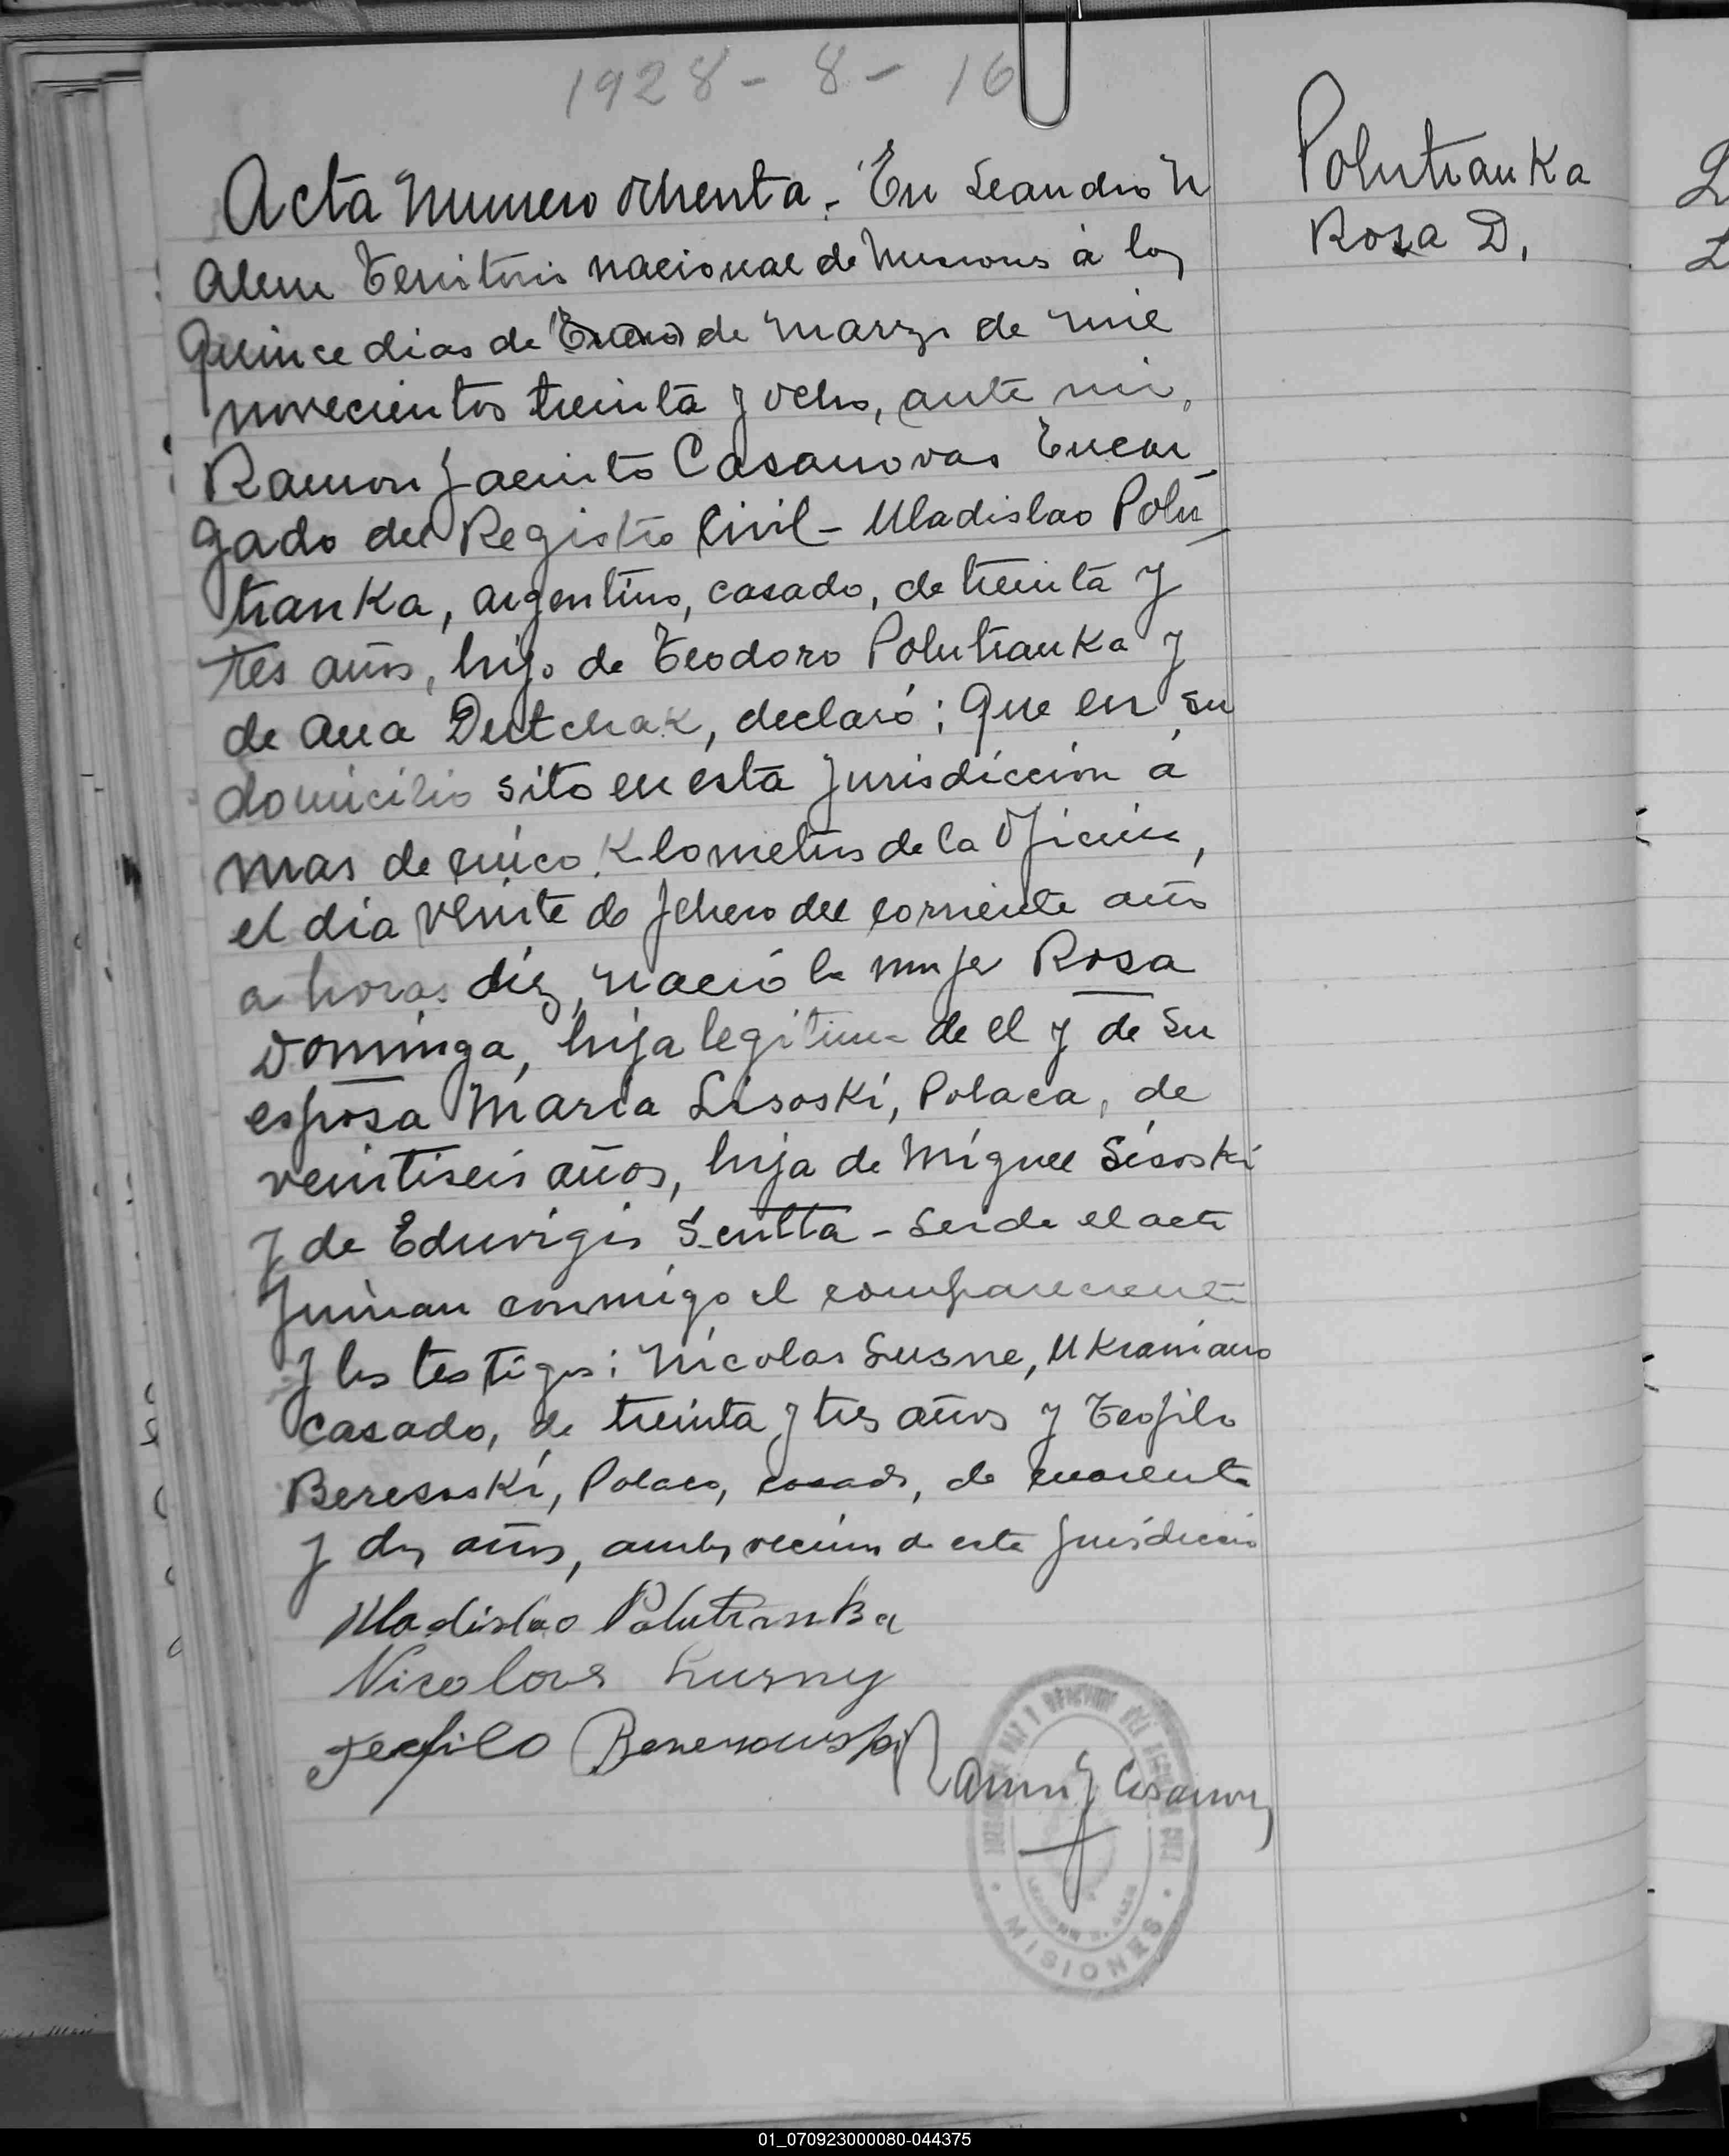 1928 - 8 - 16
Polutranka
Rosa D.
Acta Numero ochenta. - En Leandro N
Alem Territorio nacional de Misiones à los
quince dias de Enero de Marzo de mil
novecientos treinta y ocho, ante mi,
Ramon Jacinto Casanovas Encar
gado del Registro Civil - Uladislao Polu
tranka, argentino, casado, de treinta y
tres años, hijo de Teodoro Polutranka y
de Ana Deutchak, declaró; Que en su
domicilio sito en esta Jurisdicción a
mas de cinco Klometros de la Oficina,
el dia veinte de febrero del corriente año
a horas diez, nació la mujer Rosa
Dominga, hija legitima de el y de su
esposa Maria Lisoski, Polaca, de
veintiseis años, hija de Miguel Lisoski
y de Eduvigis - Leida el acta
firman conmigo el compareciente
y los testigos: Nicolas Lusne, Ukraniano
casado, de treinta y tres años y Teofilo
Beresoski, Polaco, casado, de cuarenta
y dos años, ambos vecinos de esta Jurisdiccion
Uladislao Polutranka
Nicolas Lusny
Teofilo
Ramon J Casanovas
MISIONES
01_070923000080-044375